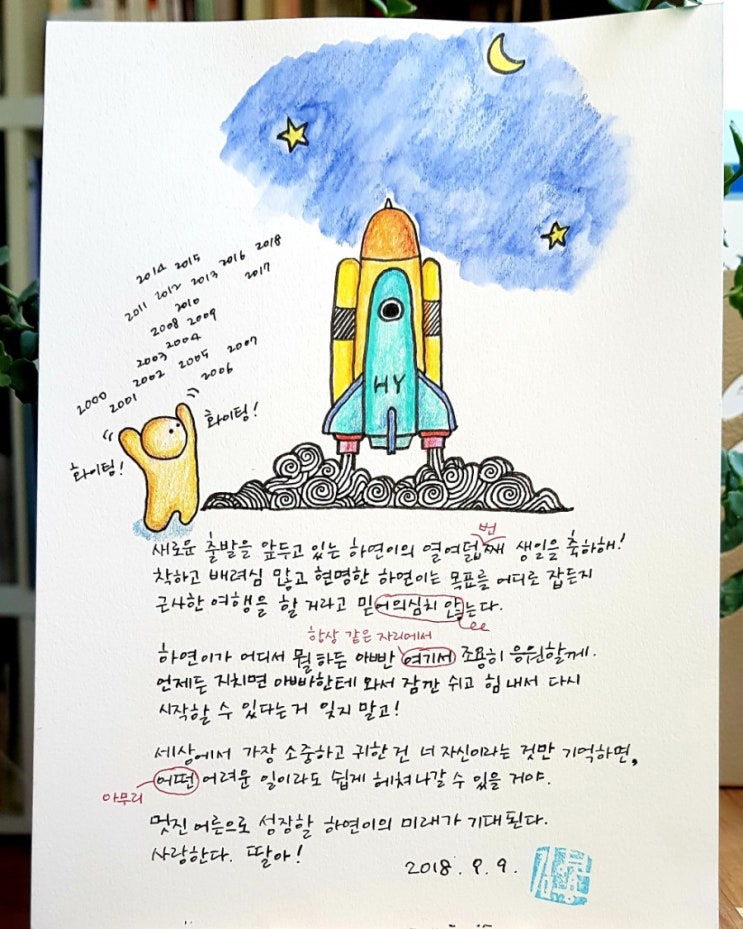 2014 2015 2016 2018
2011 2012 2013 2017
2010
2008 2009
2003 2004
2000 2001 2002 2005 2007
2006
화이팅!
화이팅!
HY
번
새로운 출발을 앞두고 있는 하연이의 열여덟째 생일을 축하해!
착하고 배려심 많고 현명한 하연이는 목표를 어디로 잡든지
근사한 여행을 할 거라고 믿어의심치 않는다.
항상 같은 자리에서
하연이가 어디서 뭘 하든 아빤 여기서 조용히 응원할께.
언제든 지치면 아빠한테 와서 잠깐 쉬고 힘 내서 다시
시작할 수 있다는거 잊지 말고!
세상에서 가장 소중하고 귀한 건 너 자신이라는 것만 기억하면,
어떤 어려운 일이라도 쉽게 헤쳐나갈 수 있을 거야.
아무리
멋진 어른으로 성장할 하연이의 미래가 기대된다.
사랑한다. 딸아!
2018. 9. 9.